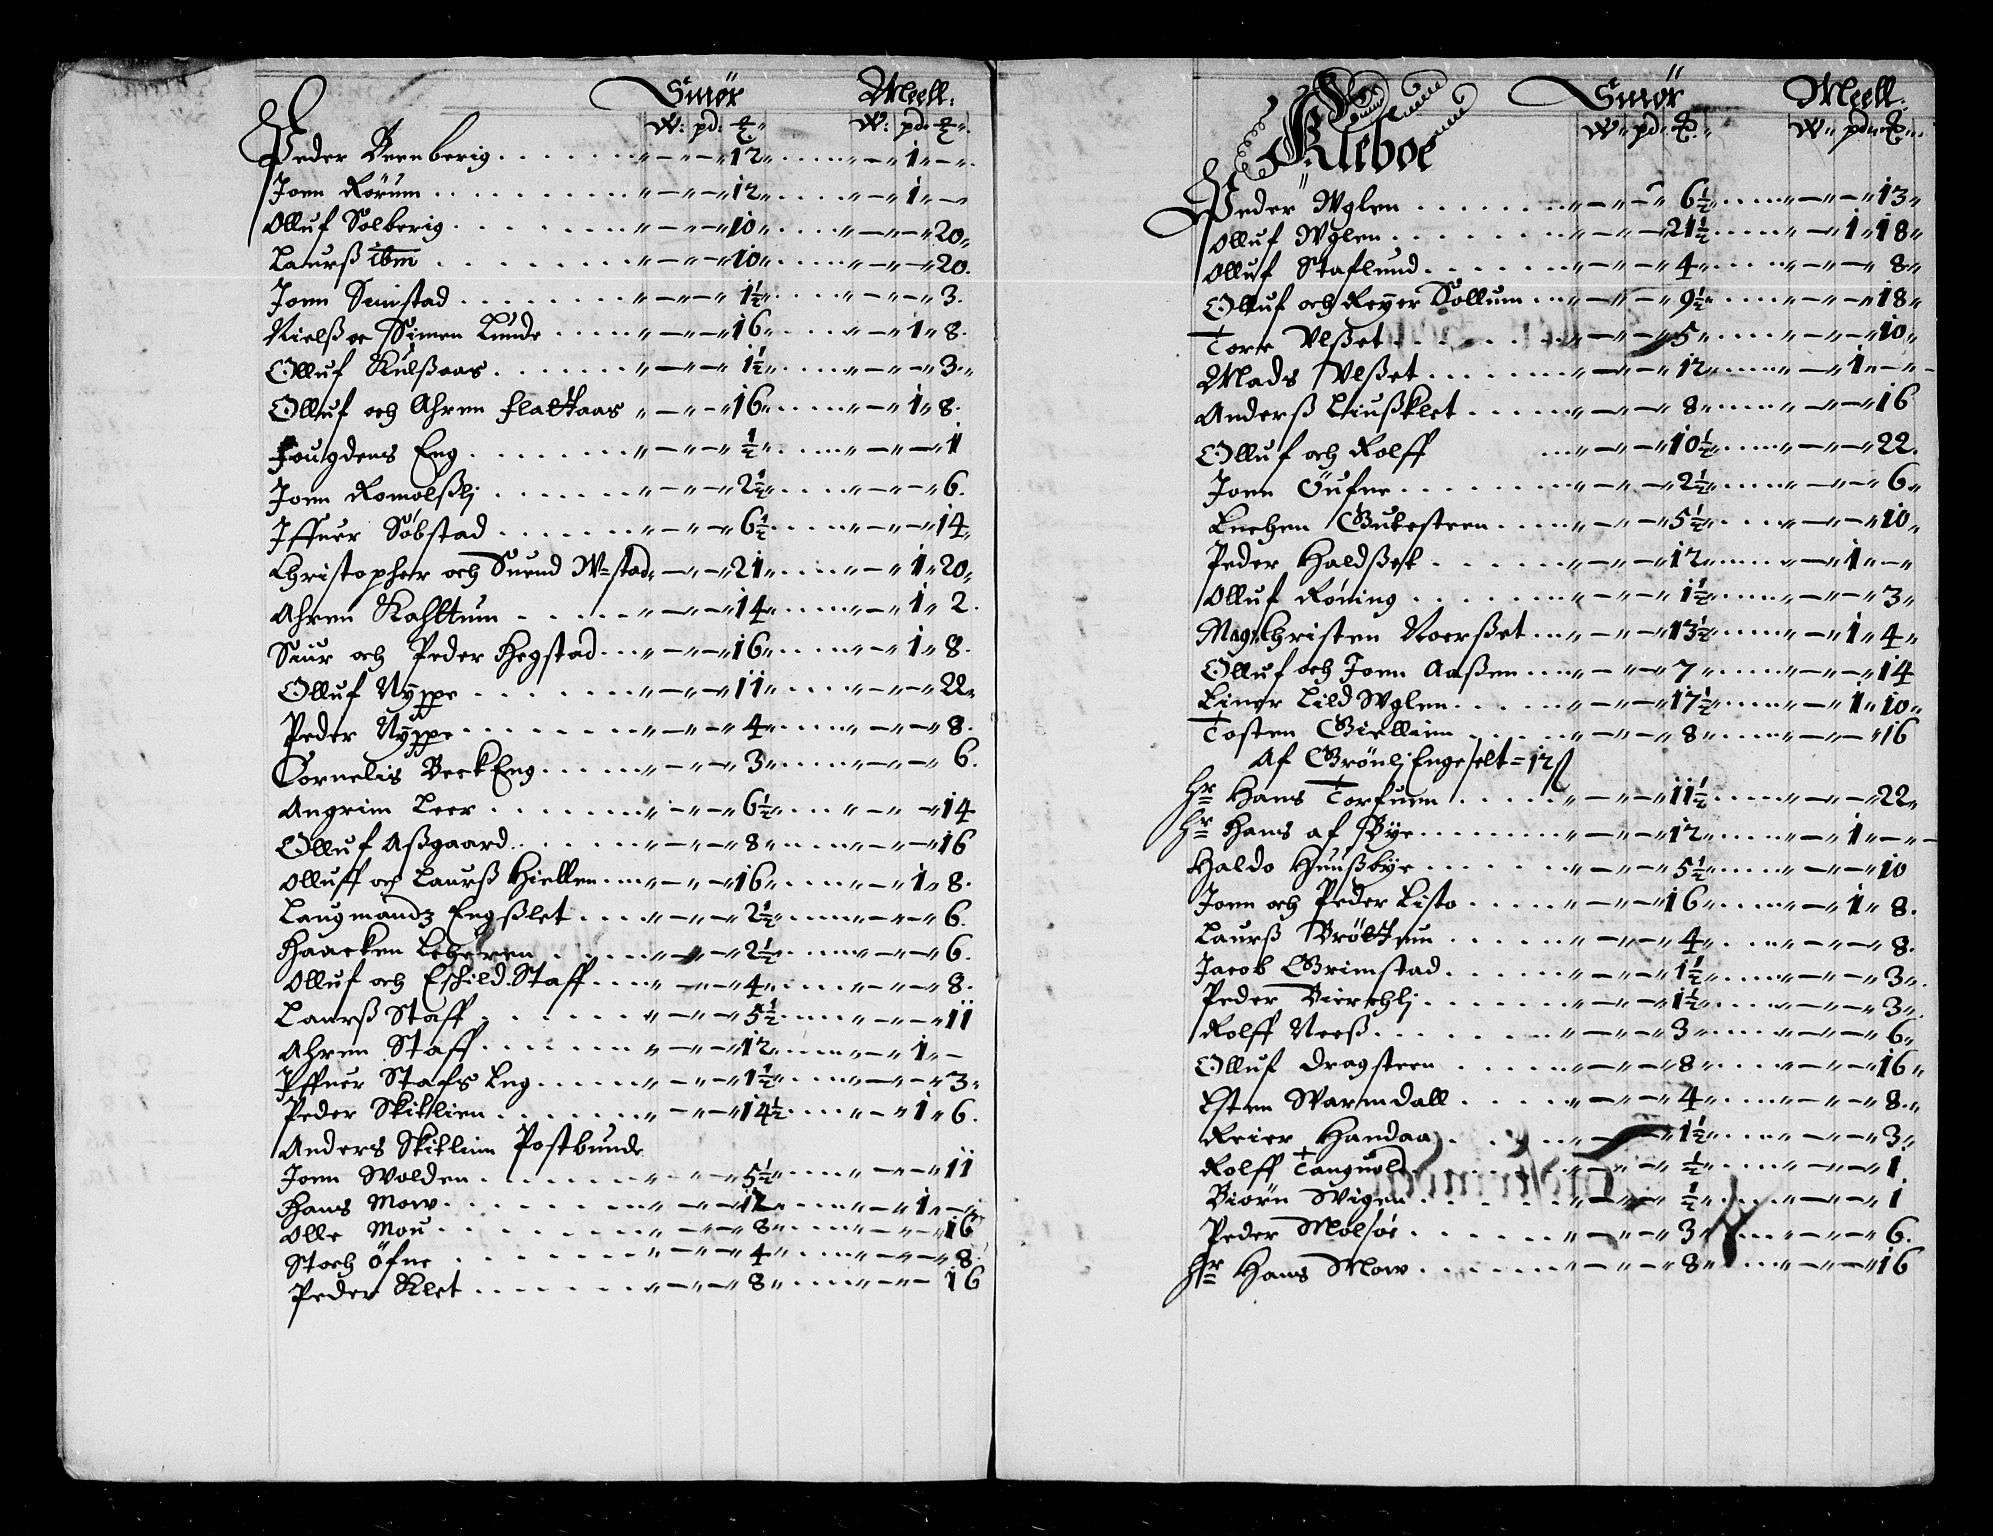 Smör Meell:
W: pd: ℔ W: pd: ℔
Peder Beenberig . . . . . . . „—„—„12„ . . . . . „—„—1„—„
Joen Rörum . . . . . . . „—„—„12„ . . . . „—„—1„—
Olluf Solberig . . . . . . . „—„—„10„ . . . . „—„—„20„
Laurß ibm . . . . . . . „—„—„10„ . . . . „—„—„20.
Joen Sunstad . . . . . . . „—„—„1½„ . . . . „—„—„3.
Nielß oc Simen Lunde . . . . „—„—„16„ . . . . „—„1„8.
Olluf Kulßaas . . . . . . . „—„—„1½„ . . . . „—„—„3„
Olluf och Ahren Flattaas „—„—„16„ . . . . „—„1„8.
Fougdens Eng . . . . . . . „—„—„½„ . . . . „—„—1
Joen Romolßli . . . . . . . „—„—„2½„ . . . . „—„—„6.
Iffuer Söbstad . . . . . . . „—„—„6½„ . . . . „—„—„14„
Christopher och Suend W=stad„—„—„21„ . . . . „—„1„20„
Ahren Kahltum . . . . . „—„—„14„ . . . . „—„1„2.
Siur och Peder Hegstad . . . „—„—„16„ . . . . „—„1„8.
Olluf Nyppe . . . . . . . „—„—„11„ . . . . „—„—„22„
Peder Nyppe . . . . . . . „—„—„4„ . . . . „—„—„8.
Cornelis Beck Eng . . . . . „—„—„3„ . . . . „—„—„6.
Angrim Leer . . . . . . . „—„—„6½„ . . . . „—„—14
Olluf Aßgaard . . . . . . „—„—„8„ . . . . „—„—„16
Olluff och Laurß Hiellen . . . . „—„—„16„ . . . . „—„1„8.
Laugmandz Engßlet . . . . „—„—„2½„ . . . . „—„—„6.
Haacken Leheren . . . . . „—„—„2½„ . . . . „—„—„6.
Olluf och Eschild Staff . . . . „—„—„4„ . . . . „—„—„8.
Laurß Staff . . . . . . . „—„—„5½„ . . . . „—„—„11
Ahren Staff . . . . . . . „—„—„12„ . . . . „—„1„—
Iffuer Stafs Eng . . . . . . „—„—„1½„ . . . . „—„—„3„
Peder Skitlien . . . . . . . „—„—„14½ . . . . „—„1„6.
Anders Skitlien Postbunde
Joen Wolden . . . . . . . „—„—„5½„ . . . . „—„—„11
Hans Mow . . . . . . . „—„—„12„ . . . . „—„1„—„
Olle Mou . . . . . . . „—„—„8„ . . . . „—„—„16
Stoch Öfne . . . . . . . „—„—„4„ . . . . „—„—„8.
Peder Klet . . . . . . . „—„—„8„ . . . . „—„—16
Smör Meell:
Kleboe W„ pd„ ℔„ W„ pd„ ℔„
Peder Wglen . . . . . . . „—„—„6½„ . . . . „—„—„13„
Olluf Wglen . . . . . . . „—„—„21½„ . . . . „—„1„18„
Olluf Staflund . . . . . . . „—„—„4„ . . . . „—„—„8„
Olluf och Reyer Sollum . . . „—„—„9½„ . . . . „—„—„18„
Tore Vlßet . . . . . . . „—„—„5„ . . . . „—„—„10„
Mads Vlßet . . . . . . . „—„—„12„ . . . . „—„1„—„—
Anderß Liußklet . . . . . „—„—„8„ . . . . „—„—„16
Olluf och Rolff . . . „—„—„10½„ . . . . „—„—„22.
Joen Öufne . . . . . . . „—„—„2½„ . . . . „—„—„6„
Enchen Gubesteen . . . . . „—„—„5½„ . . . . „—„—„10„
Peder Haldßet . . . . . . . „—„—„12„ . . . . „—„1„—„
Olluf Röning . . . . . . . „—„—„1½„ . . . . „—„—„3„
Mag: Christen Noerßet . . . „—„—„13½„ . . . . „—„1„4„
Olluf och Joen Aaßen . . . . „—„—„7„ . . . . „—„—„14
Einer Lild Wglen . . . . . . „—„—„17½„ . . . . „—„1„10„
Tosten Giellien . . . . . . . „—„—„8„ . . . . „—„—„16
Af Grönli Engeselt = 12ß
Hr Hans Torfuen . . . . . „—„—„11½„ . . . . „—„—„22„
Hr Hans af Bye . . . . . . . „—„—„12„ . . . . „—„1„—„—
Haldo Hunßbye . . . . . . . „—„—„5½„ . . . . „—„—„10
Joen och Peder Listo . . . . „—„—„16„ . . . . „—„1„8.
Laurß Bröttun . . . . . . „—„—„4„ . . . . „—„—„8.
Jacob Grimstad . . . . . . „—„—„1½„ . . . . „—„—„3„
Peder Bierchli . . . . . . . „—„—„1½„ . . . . „—„—„3„
Rolff Neeß . . . . . . . „—„—„3„ . . . . „—„—„6„
Olluf Dragsteen . . . . . . „—„—„8„ . . . . „—„—„16„
Esten Warmdall . . . . . „—„—„4„ . . . . „—„—„8„
Reier Handaa . . . . . „—„—„1½„ . . . . „—„—„3„
Rolff Tanguold . . . . . „—„—„½„ . . . . „—„—„1
Biörn Wigen . . . . . . . „—„—„½„ . . . . „—„—„1
Peder Molsöe . . . . . . . „—„—„3„ . . . . „—„—„6.
Hr Hans Mow . . . . . . . „—„—„8„ . . . . „—„—„16